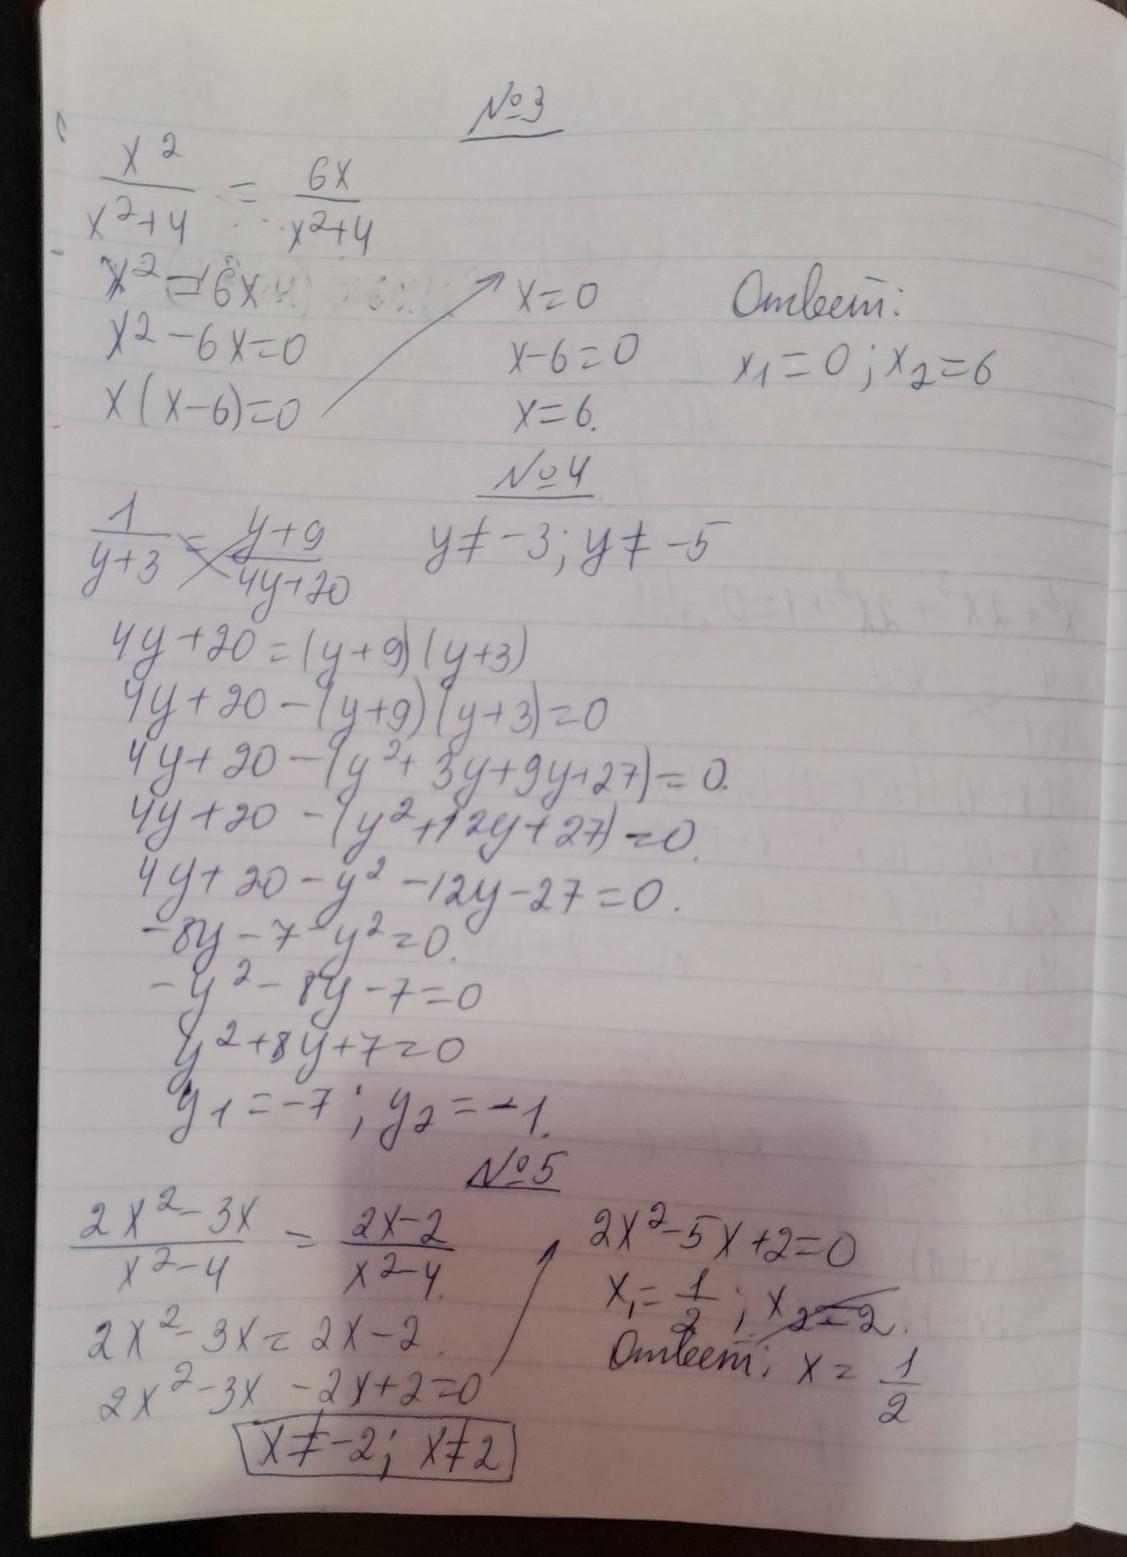 №3
x²/(x²+4) = 6x/(x²+4)
x² = 6x
x² - 6x = 0
x(x-6)=0
x=0
x-6=0
x=6.
Ответ:
x₁=0; x₂=6
№4
1/(y+3) = (y+9)/(4y+20) y≠-3; y≠-5
4y+20=(y+9)(y+3)
4y+20-(y+9)(y+3)=0
4y+20-(y²+3y+9y+27)=0.
4y+20-(y²+12y+27)=0.
4y+20-y²-12y-27=0.
-8y-7-y²=0.
-y²-8y-7=0
y²+8y+7=0
y₁=-7; y₂=-1.
№5
(2x²-3x)/(x²-4) = (2x-2)/(x²-4)
2x²-3x=2x-2.
2x²-3x-2x+2=0
x≠-2; x≠2
2x²-5x+2=0
x₁=1/2; x₂=2.
Ответ: x=1/2